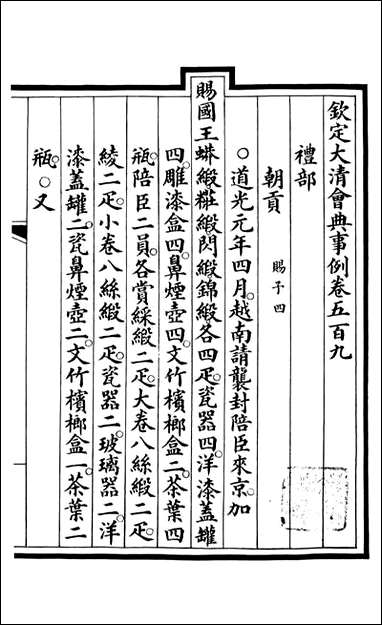 欽定大清會典事例卷五百九
禮部
朝貢 賜予四
○道光元年四月。越南請襲封陪臣來京。加
賜國王蟒緞糚緞閃緞錦緞各四疋。瓷器四。洋漆蓋罐
四。雕漆盒四。鼻煙壺四。文竹檳榔盒二。茶葉四
瓶。陪臣二員。各賞綵緞二疋。大卷八絲緞二疋。
綾二疋。小卷八絲緞二疋。瓷器二。玻璃器二。洋
漆蓋罐二。瓷鼻煙壺二。文竹檳榔盒一。茶葉二
瓶。○又